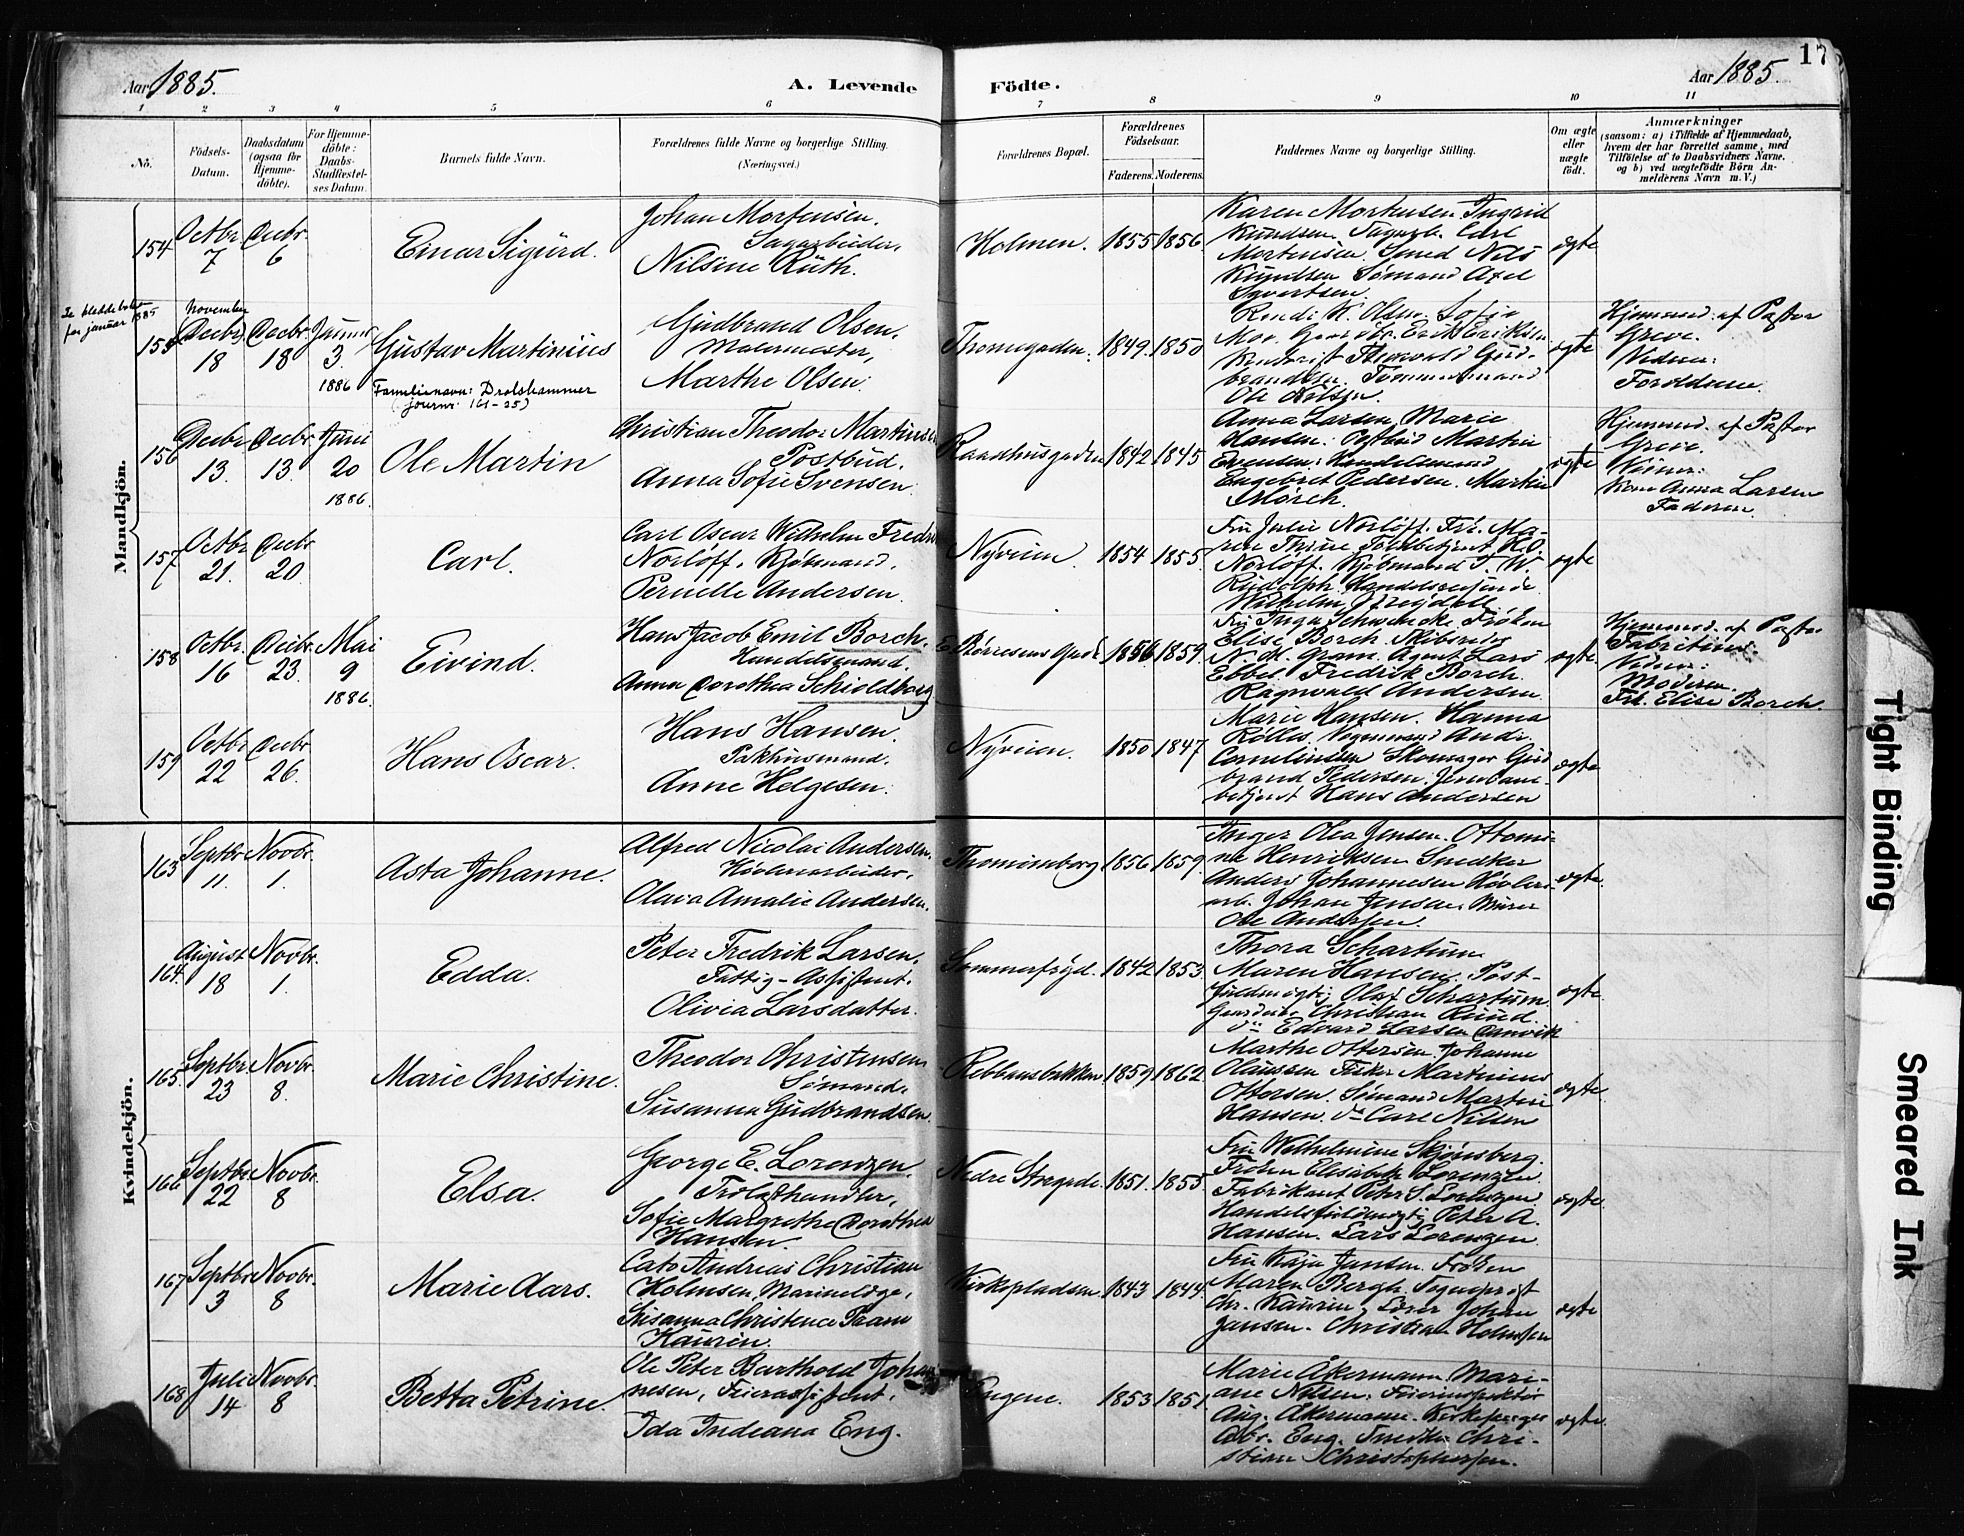 Aar 1885.
A. Levende Födte.
Aar 1885.
17
1 2 3 4 5 6 7 8 9 10 11
No.
Födsels-Datum.
Daabsdatum (ogsaa for Hjemme-döbte).
For Hjemme-döbte: Daabs-Stadfæstel-ses Datum.
Barnets fulde Navn.
Forældrenes fulde Navne og borgerlige Stilling. (Næringsvei.)
Forældrenes Bopæl.
Forældrenes Födselsaar.
Faderens. Moderens.
Faddernes Navne og borgerlige Stilling.
Om ægte eller uægte födt.
Anmærkninger
(saasom: a) i Tilfælde af Hjemmedaab,
hvem der har forrettet samme, med
Tilföielse af to Daabsvidners Navne.
og b) ved uægtefödte Börn An-
melderens Navn m. V.)
Mandkjön.
154 Octbr. 7 Decbr. 6
Einar Sigurd.
Johan Mortensen,
Sagarbeider,
Nilsine Ruth.
Holmen. 1855 1856.
Karen Mortensen Ingrid
Knudsen Carl
Mortensen. Smed Nils
Knudsen Sømand Axel
Syvertsen
ægte
for januar 1885
155 November Decbr. 18 Decbr. 18 Januar 3. 1886
Gustav Martinius
Familienavn: Drolshammer
(Journr. 161-25)
Gudbrand Olsen,
Malermester,
Marthe Olsen.
Thornegaden. 1849. 1850
K. Olsen Sofie
Erik Eriksen
Thorvald Gud-
brandsen. Tømmermand
Ole
ægte
Hjemmed. af Pastor
Greve.
Vidner:
Foreldrene.
156 Decbr. 13. Decbr. 13. Juni 20 1886.
Ole Martin
Christian Theodor Martinsen
Postbud.
Anna Sofie Svensen.
Raadhusgaden 1842 1845
Anna Larsen, Marie
Hansen. Postbud Martin
Evensen. Handelsmand
Engebret Pedersen. Martin
Mørch.
ægte
Hjemmed. af Pastor
Greve.
Vidner:
Kone Anna Larsen
Faderen.
157 Octbr. 21. Decbr. 20.
Carl.
Carl Oscar Wilhelm Fredrik
Norløff, Kjøbmand,
Pernelle Andersen.
Nyveien. 1854 1855.
Fru Julie Norløff. Frk. Ma-
ren Thiue Toldbetjent H.O.
Norløff. Kjøbmand T. W.
Rudolph. Handelsreisende
Wilhelm
ægte
158 Octbr. 16 Decbr. 23. Mai 9 1886.
Eivind.
Hans Jacob Emil Borch.
Handelsmand.
Anna Dorothea Schioldborg
E. Børresens Gade 1856 1859.
Fru Inga Schwencke Frøken
Elise Borch. Skibsreder
N. M. Gram. Agent Lars
Ebbes Fredrik Borch.
Ragnvald Andersen
ægte
Hjemmed. af Pastor
Fabritius.
Vidner:
Moderen.
Frk. Elise Borch.
159 Octbr. 22 Decbr. 26.
Hans Oscar.
Hans Hansen.
Pakhusmand.
Anne Helgesen.
Nyveien. 1850 1847
Marie Hansen. Hanna
Røllis. Vognmand Andr.
Corneliussen Skomager Gud
brand Pedersen. Jernbane-
betjent Hans Andersen
ægte
Kvindekjön.
163 Septbr. 11. Novbr. 1.
Asta Johanne.
Alfred Nicolai Andersen,
Høvleriarbeider,
Olava Amalie Andersen.
Thomsonsborg 1856 1859.
Inger Olea Jensen. Ottomi-
ne Henriksen. Snedker
Anders Johannesen Høvleri-
arb. Johan Jensen. Murer
Ole Andersen.
ægte.
164. August 18 Novbr. 1.
Edda.
Peter Fredrik Larsen,
Fattig-Assistent.
Olivia Larsdatter.
Sommerfryd. 1842 1853.
Thora Schartum
Maren Hansen. Post-
fuldmægtig Olaf Schartum.
Gaardeier Christian Ruud.
do Edvard Larsen Damvik
ægte.
165 Septbr. 23 Novbr. 8.
Marie Christine.
Theodor Christensen
Sømand,
Susanna Gudbrandsen.
Rebbansbakken 1859 1862.
Marthe Ottersen. Johanne
Olaussen Fisker Martinius
Ottersen. Sømand Martin
Hansen. do Carl Nilsen
ægte.
166 Septbr. 22 Novbr. 8
Elsa.
George E. Lorenzen.
Trælasthandler,
Sofie Margrethe Dorothea
Hansen.
Nedre Storgade. 1851. 1855.
Fru Wilhelmine Skjønsberg.
Frøken Elisabeth Lorenzen.
Fabrikant Peter S. Lorenzen
Handelsfuldmægtig Peter A.
Hansen. Lars Lorenzen.
ægte.
167 Septbr. 3 Novbr. 8
Marie Aars.
Cato Andreas Christian
Holmsen, Marinelæge,
Susanna Christence Pram
Kaurin.
Kirkepladsen 1843 1844.
Fru Kaja Jansen. Frøken
Maren Bergh. Sogneprest
Chr. Kaurin, Johan
Jansen. Christian Holmsen
ægte
168 Juli 14 Novbr. 8
Betta Petrine.
Ole Peter Barthold Johan
nesen, Feierassistent,
Ida Indiana Eng.
Engene. 1853. 1851.
Marie Åkermann. Mari-
ane Nilsen. Feierinspektør
Aug. Åkermann. Kirkesanger
Abr. Eng. Snedker Chri-
stian Christophersen.
ægte.
Tight Binding
Smeared Ink